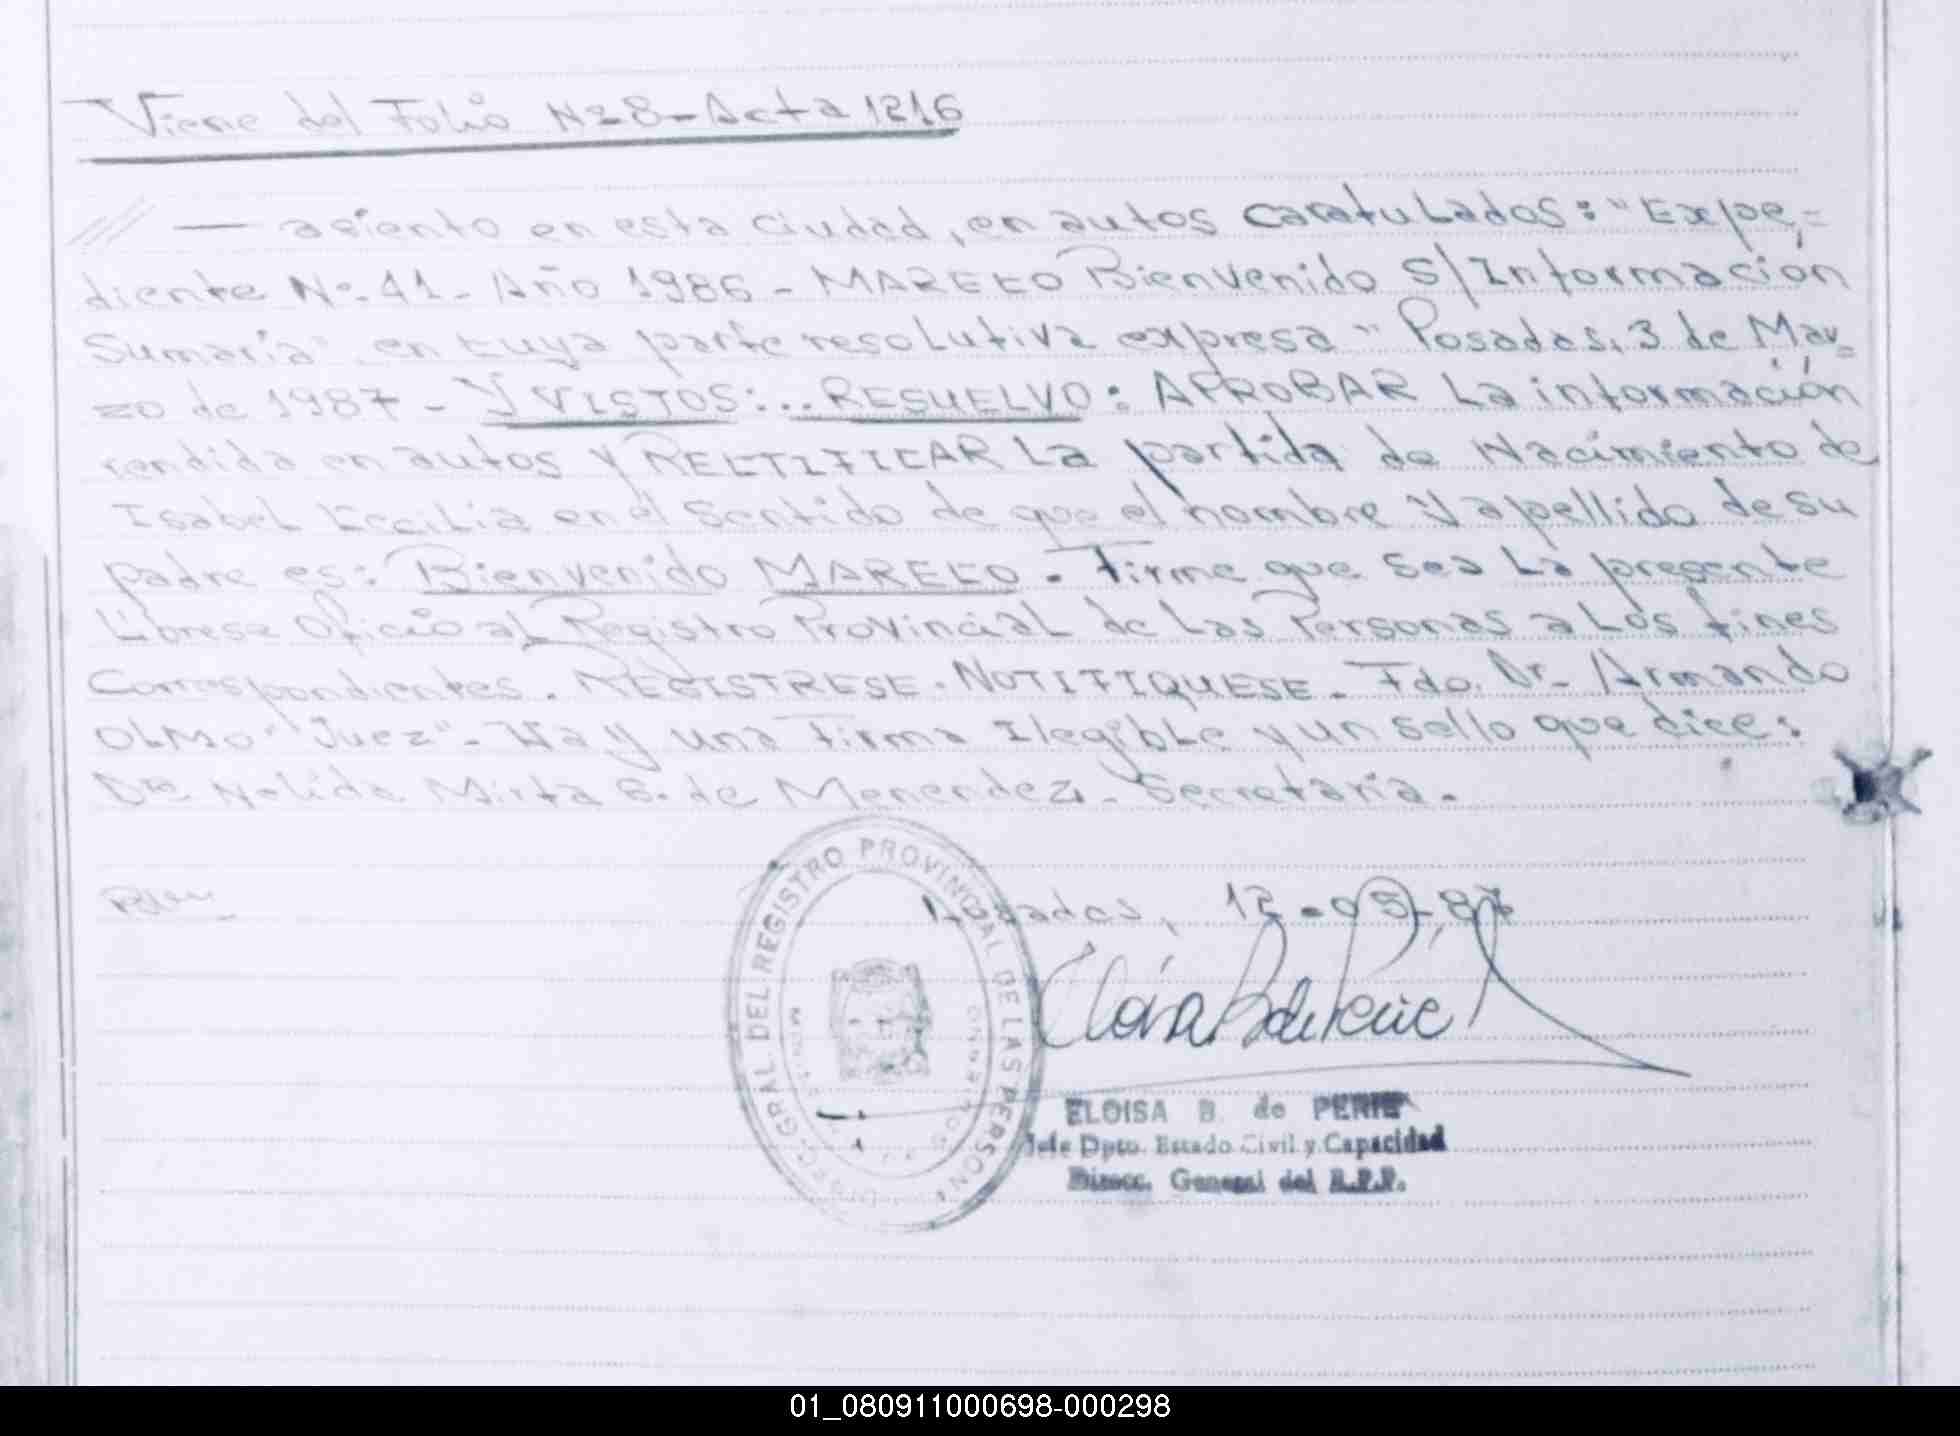 Viene del Folio Nº 8 - Acta 1216
// — asiento en esta ciudad, en autos caratulados: "Expe=
diente Nº 41 - Año 1986 - MARECO Bienvenido S/Información
Sumaria" en cuya parte resolutiva expresa "Posadas, 3 de Mar=
zo de 1987 - Y VISTOS:... RESUELVO: APROBAR La información
rendida en autos y RECTIFICAR La partida de Nacimiento de
Isabel Cecilia en el Sentido de que el nombre y apellido de su
padre es: Bienvenido MARECO. Firme que sea La presente
Librese Oficio al Registro Provincial de Las Personas a Los fines
Correspondientes. REGISTRESE. NOTIFIQUESE. Fdo. Dr. Armando
OLMO "Juez". Hay una Firma Ilegible y un sello que dice:
Dra Nelida Mirta G. de Menendez. Secretaria.
Posadas, 12-05-87
DIREC. GRAL. DEL REGISTRO PROVINCIAL DE LAS PERSONAS
MISIONES
POSADAS
ELOISA B. de PERIE
Jefe Dpto. Estado Civil y Capacidad
Direcc. General del R.P.P.
01_080911000698-000298